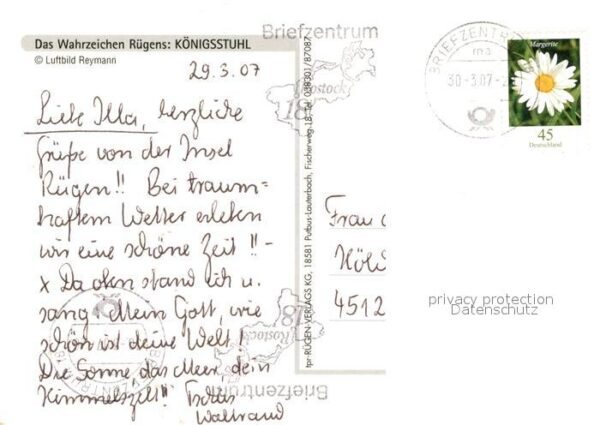 Das Wahrzeichen Rügens: KÖNIGSSTUHL
© Luftbild Reymann
29.3.07
Liebe Illa, herzliche
Grüße von der Insel
Rügen!! Bei traum-
haftem Wetter erleben
wir eine schöne Zeit!! -
x Da oben stand ich u.
sang „Mein Gott, wie
schön ist deine Welt!
Die Sonne das Meer, dein
Himmelszelt!"
Waltraud
tpr-RÜGEN-VERLAGS KG, 18581 Putbus-Lauterbach, Fischerweg 18, Tel. 038301/87087
Briefzentrum
18
Rostock
18
Rostock
Briefzentrum
BRIEFZENTRUM
30-3.07-
Margerite
45
Deutschland
Frau
4512
privacy protection
Datenschutz